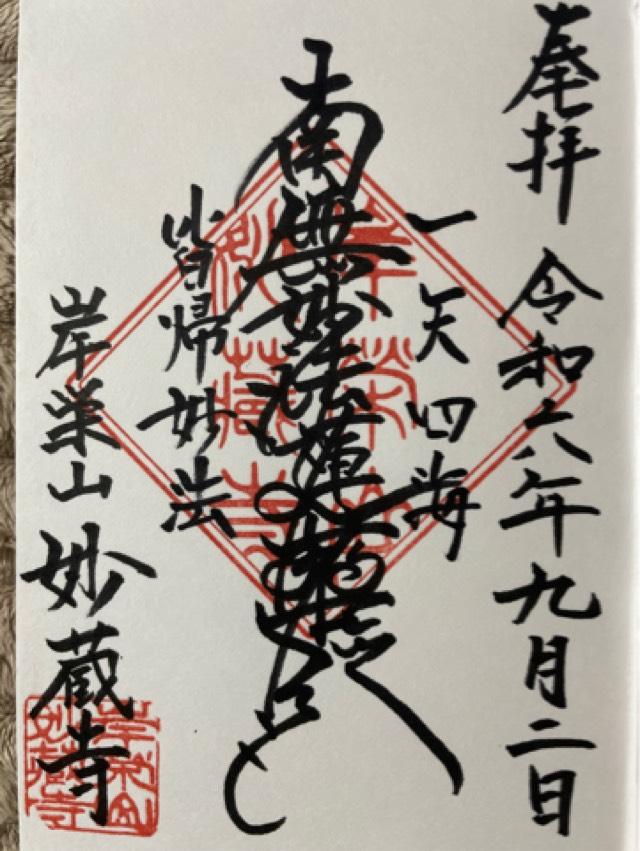 奉拝 令和六年九月二日
一天四海
南無妙法蓮華経
皆帰妙法
岸栄山 妙蔵寺